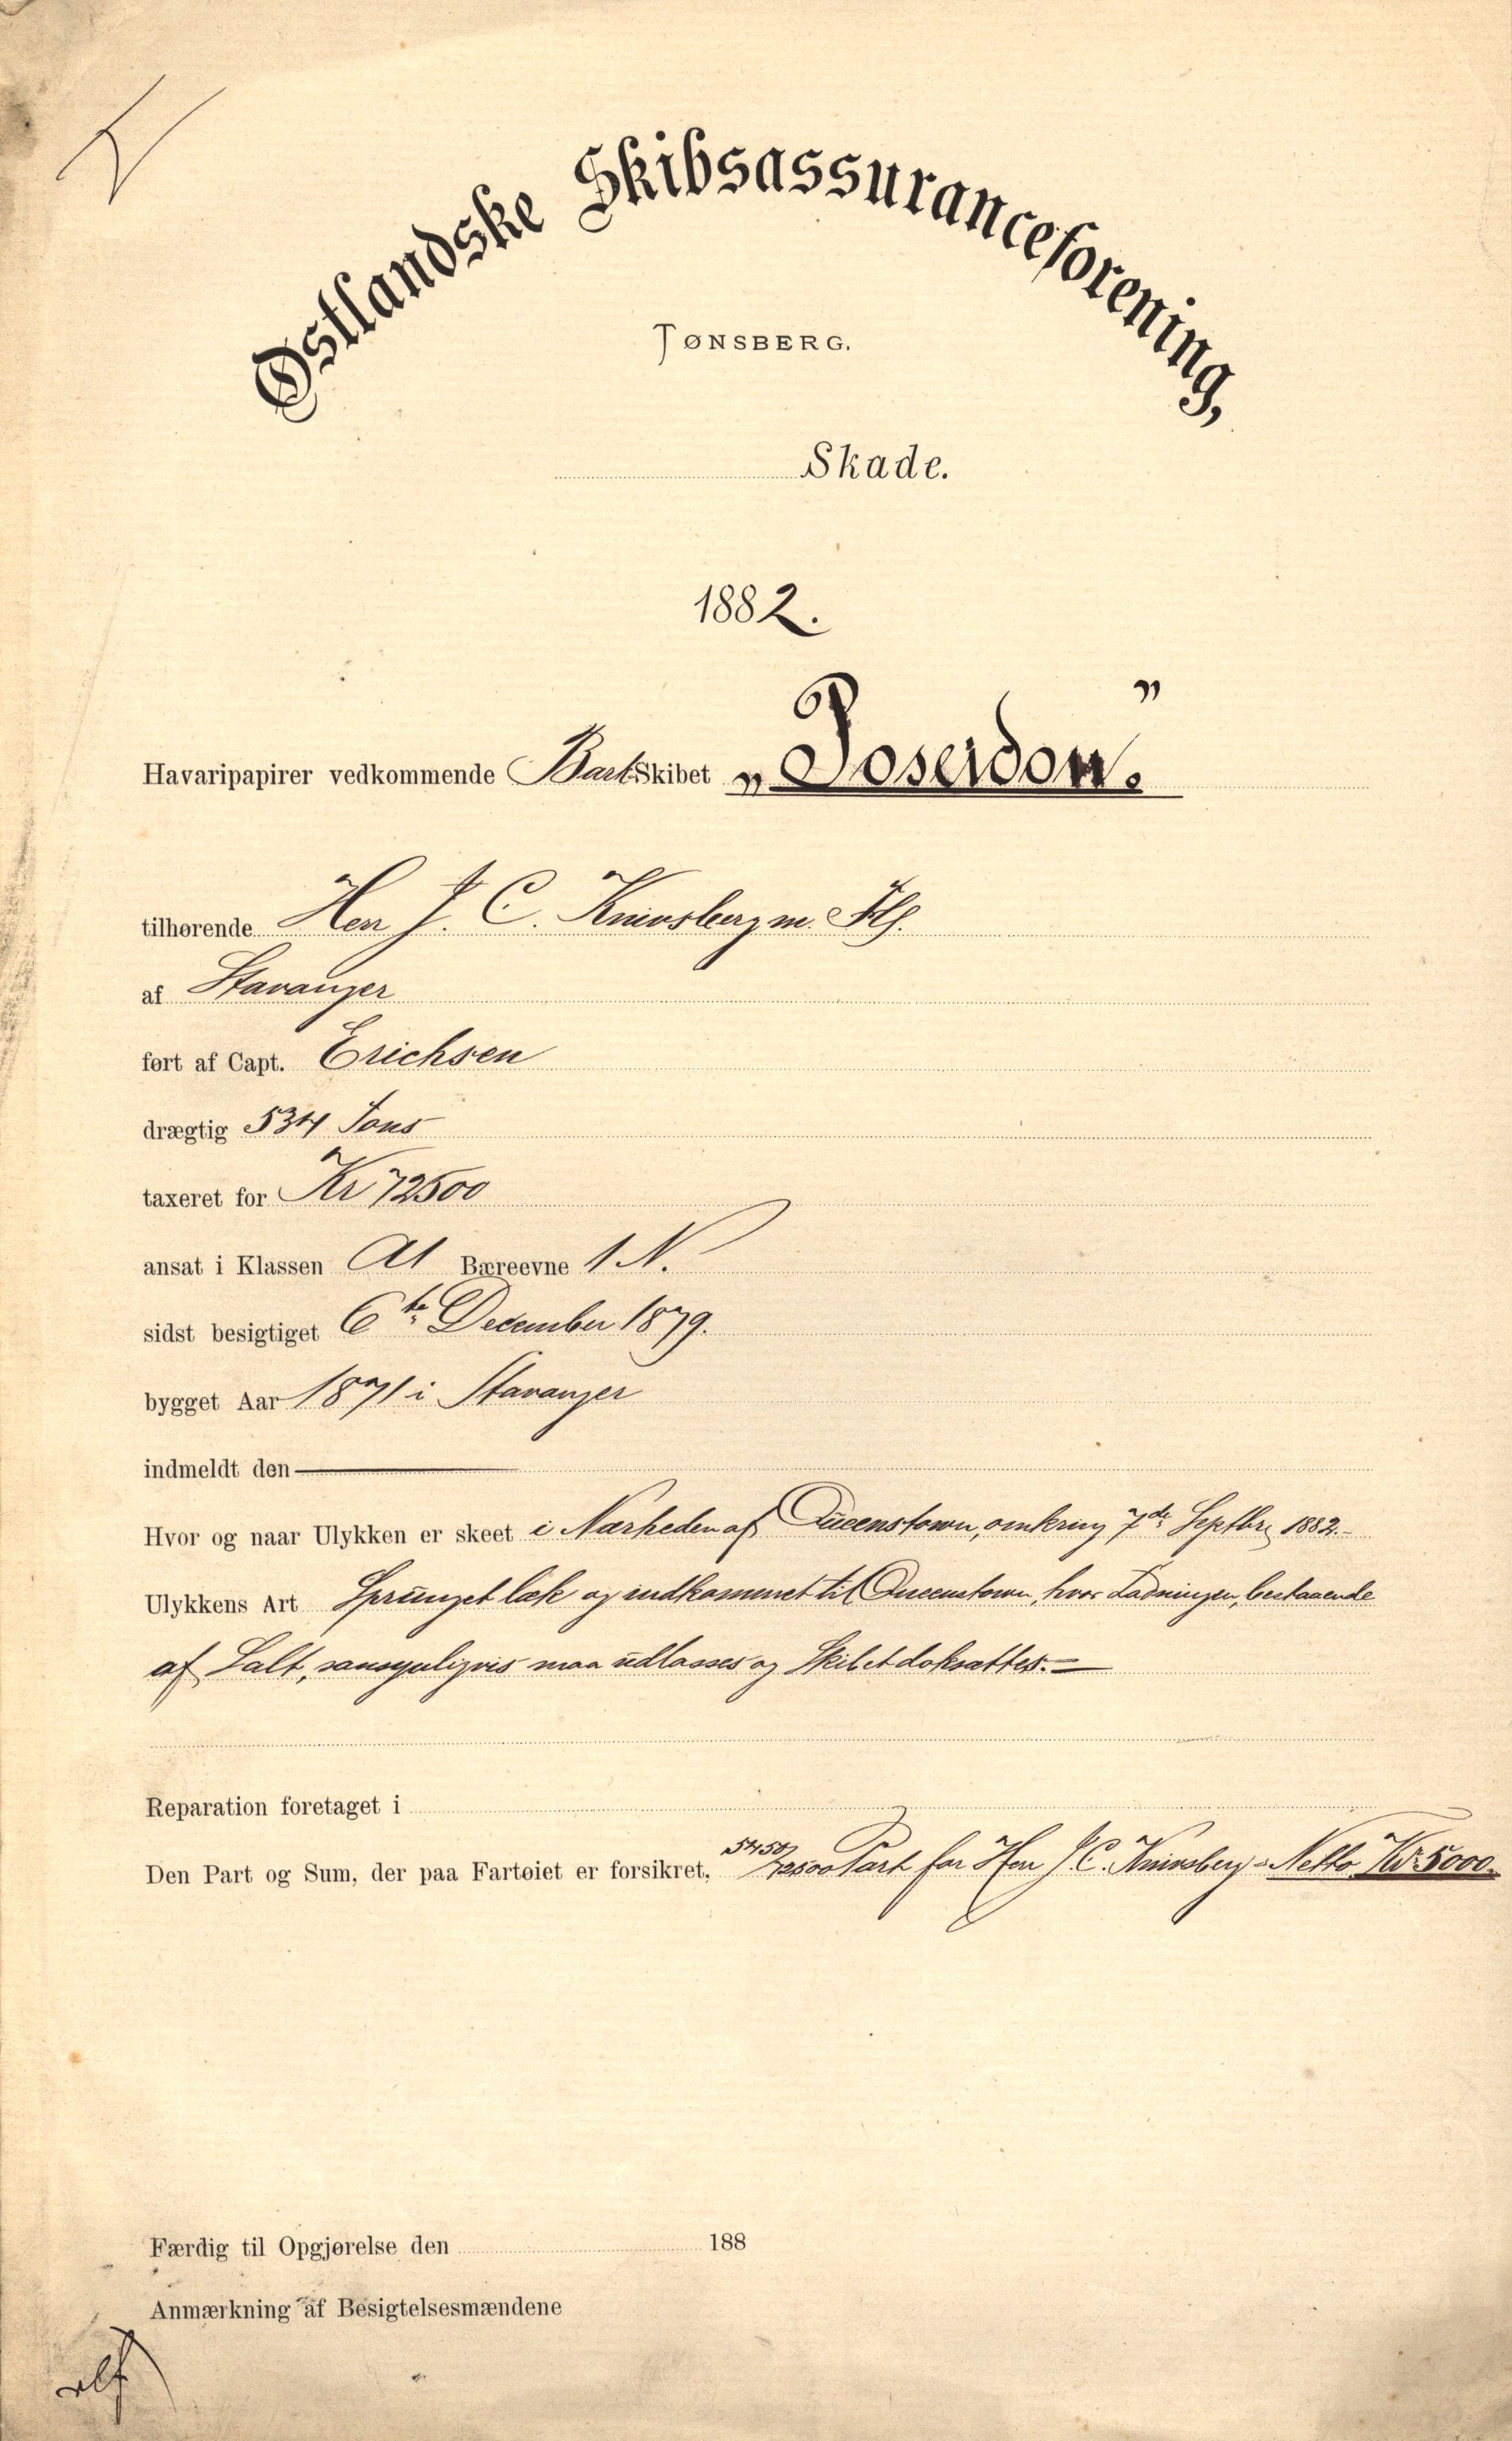 Østlandske Skibsassuranceforening,
TØNSBERG.
Skade.
1882.
Havaripapirer vedkommende Bark Skibet „Poseidon."
tilhørende Herr J. C. Knivsberg m. Flg.
af Stavanger
ført af Capt. Erichsen
drægtig 534 Tons
taxeret for Kr 72500
ansat i Klassen A1 Bæreevne 1 N.
sidst besigtiget 6te December 1879.
bygget Aar 1871 i Stavanger
indmeldt den
Hvor og naar Ulykken er skeet i Nærheden af Queenstown, omkring 7de Septbr 1882.
Ulykkens Art Sprunget læk og indkommet til Queenstown, hvor Ladningen, bestaaende
af Salt, sansynligvis maa udlosses og Skibet doksættes.
Reparation foretaget i
Den Part og Sum, der paa Fartøiet er forsikret, 5450/72500 Part for Herr J. C. Knivsberg = Netto Kr. 5000.
Færdig til Opgjørelse den 188
Anmærkning af Besigtelsesmændene